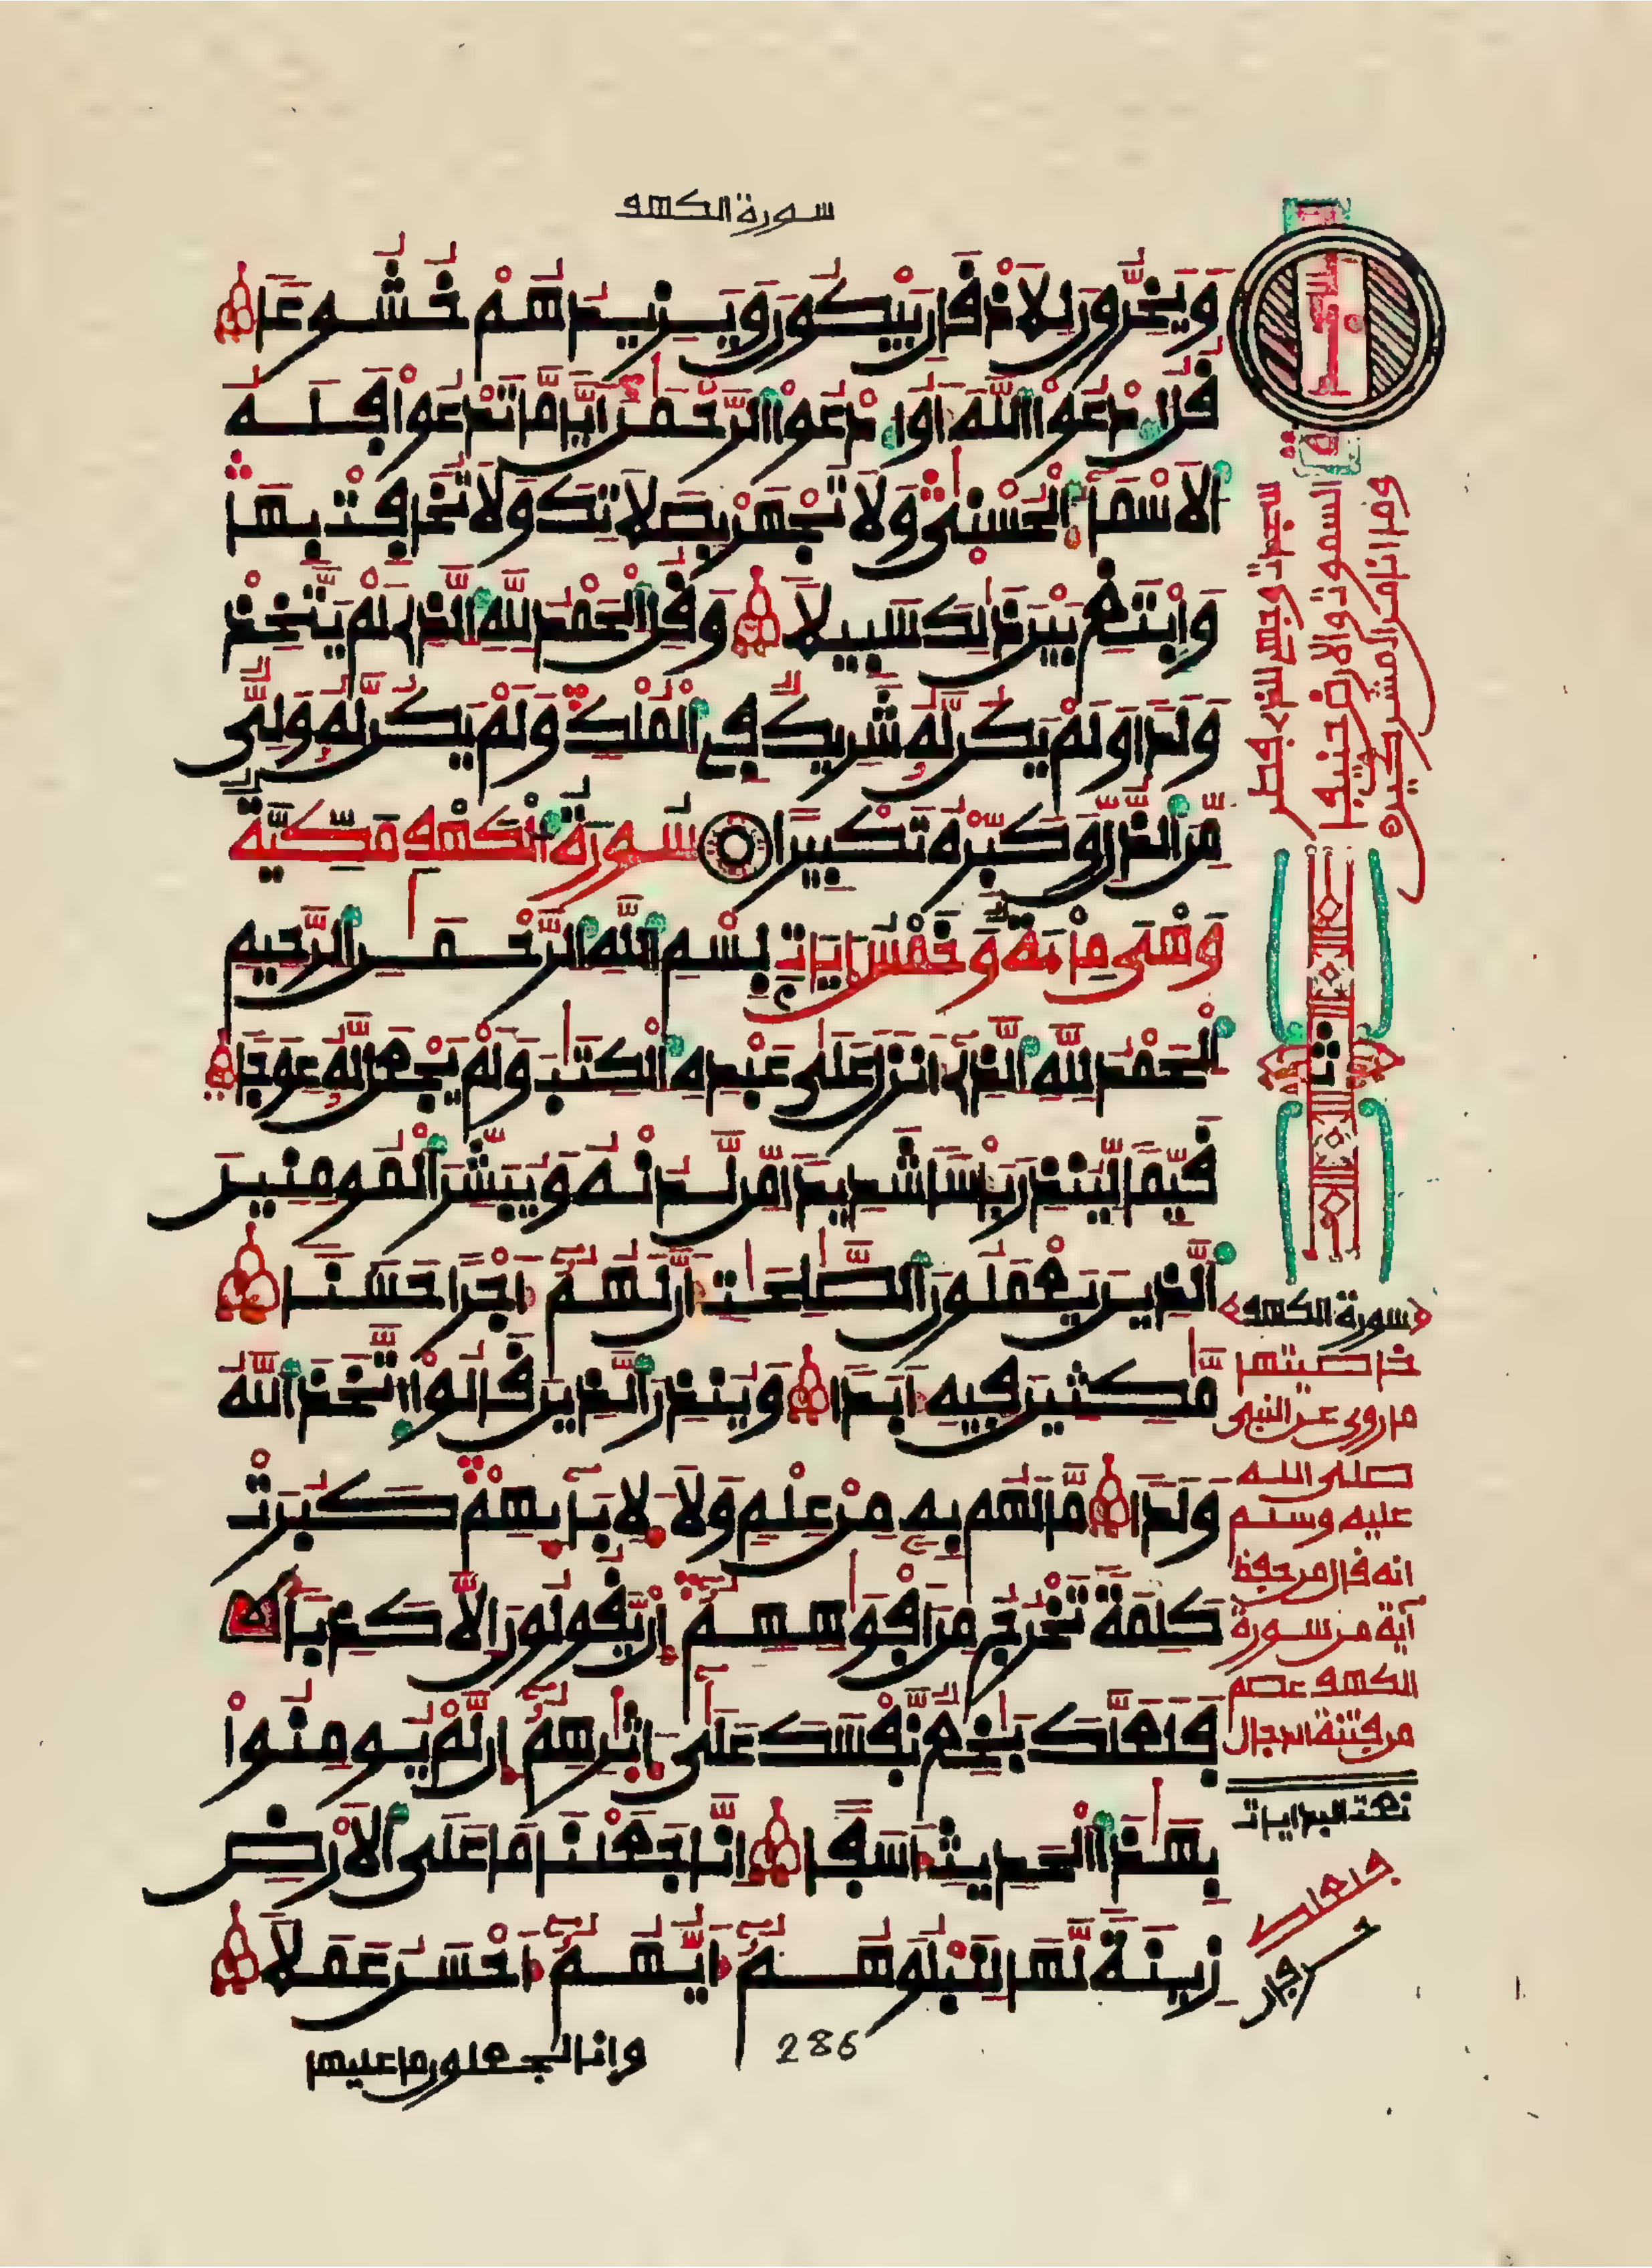 سورة الكهف
وَيَخِرُّونَ لِلَاذْقَانِ يَبْكُونَ وَيَزِيدُهُمْ خُشُوعًا
قُلُ ادْعُوا اللَّهَ أَوُ ادْعُوا الرَّحْمَٰنَ أَيًّا مَّا تَدْعُوا فَلَهُ
الْأَسْمَاءُ الْحُسْنَىٰ وَلَا تَجْهَرْ بِصَلَاتِكَ وَلَا تُخَافِتْ بِهَا
وَابْتَغِ بَيْنَ ذَٰلِكَ سَبِيلًا وَقُلِ الْحَمْدُ لِلَّهِ الَّذِي لَمْ يَتَّخِذْ
وَلَدًا وَلَمْ يَكُن لَّهُ شَرِيكٌ فِي الْمُلْكِ وَلَمْ يَكُن لَّهُ وَلِيٌّ
مِّنَ الذُّلِّ وَكَبِّرْهُ تَكْبِيرًا سُورَةُ الْكَهْفِ مَكِّيَّةٌ
وَهْيَ مِائَةٌ وَخَمْسُ ايَاتٍ بِسْمِ اللَّهِ الرَّحْمَٰنِ الرَّحِيمِ
الْحَمْدُ لِلَّهِ الَّذِي أَنزَلَ عَلَىٰ عَبْدِهِ الْكِتَٰبَ وَلَمْ يَجْعَل لَّهُ عِوَجًا
قَيِّمًا لِّيُنذِرَ بَأْسًا شَدِيدًا مِّن لَّدُنْهُ وَيُبَشِّرَ الْمُومِنِينَ
الَّذِينَ يَعْمَلُونَ الصَّٰلِحَٰتِ أَنَّ لَهُمُ أَجْرًا حَسَنًا
مَّٰكِثِينَ فِيهِ أَبَدًا وَيُنذِرَ الَّذِينَ قَالُوا اتَّخَذَ اللَّهُ
وَلَدًا مَّا لَهُم بِهِ مِنْ عِلْمٍ وَلَا لِأَبَائِهِمْ كَبُرَتْ
كَلِمَةً تَخْرُجُ مِنَ أَفْوَٰهِهِمُ إِن يَّقُولُونَ إِلَّا كَذِبًا
فَلَعَلَّكَ بَٰخِعٌ نَّفْسَكَ عَلَىٰ أَثَٰرِهِمُ إِن لَّمْ يُومِنُوا
بِهَٰذَا الْحَدِيثِ أَسَفًا إِنَّا جَعَلْنَا مَا عَلَى الْأَرْضِ
زِينَةً لَّهَا لِنَبْلُوَهُمُ أَيُّهُمُ أَحْسَنُ عَمَلًا
286
وانا لجعلون ما عليها
سجدات وجهي للذي فطر
السموت والارض حنيفا
وما انا من المشركين
ثمن
سورة الكهف
خاصيتها
ما روي عن النبي
صلى الله
عليه وسلم
انه قال من حفظ
آية من سورة
الكهف عصم
من فتنة الدجال
فلعلك